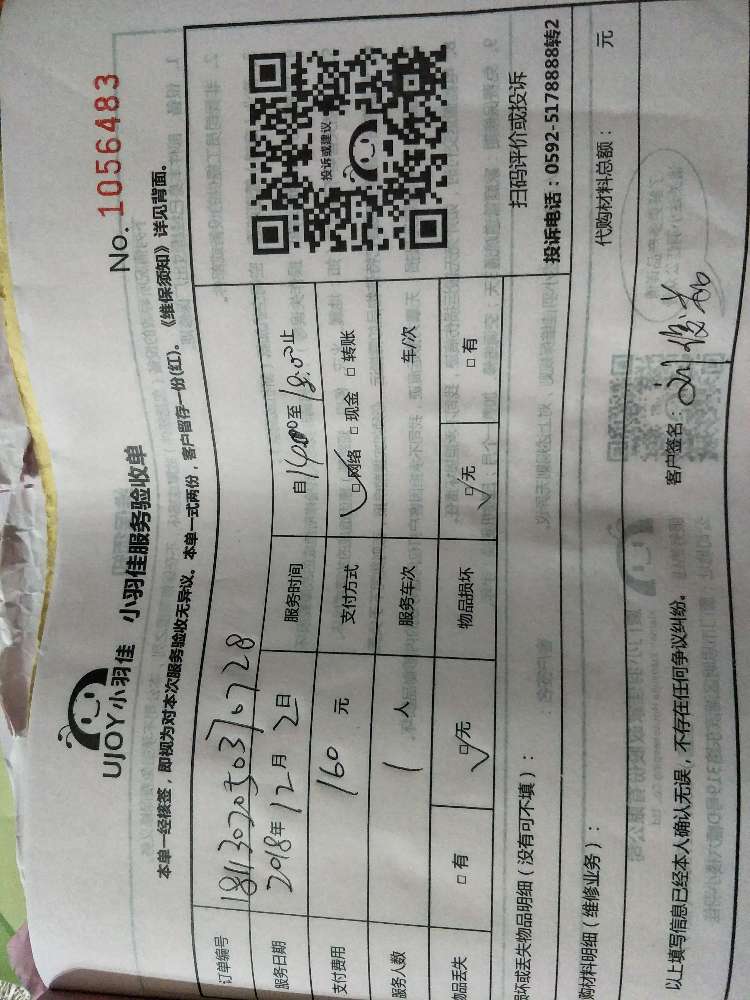 No. 1056483
UJOY小羽佳 小羽佳服务验收单
本单一经核签，即视为对本次服务验收无异议。本单一式两份，客户留存一份(红)。《维保须知》详见背面。
订单编号 18113020503710728
服务日期 2018年12月2日 服务时间 自14:00至18:00止
支付费用 160 元 支付方式 ☑网络 □现金 □转账
服务人数 1 人 服务车次 车/次
物品丢失 □有 ☑无 物品损坏 ☑无 □有
投诉或建议
扫码评价或投诉
投诉电话：0592-5178888转2
损坏或丢失物品明细（没有可不填）：
购材料明细（维修业务）： 代购材料总额： 元
以上填写信息已经本人确认无误，不存在任何争议纠纷。 客户签名：